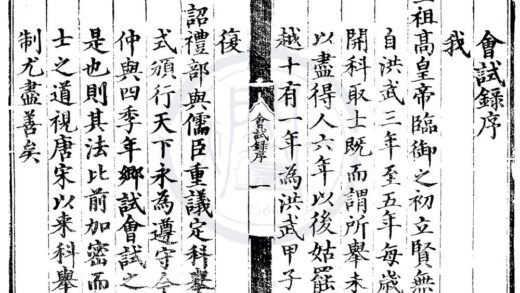 會試錄序
我
祖高皇帝臨御之初立賢無
自洪武三年至五年每歲
開科取士既而謂所舉未
以盡得人六年以後姑罷
越十有一年為洪武甲子
會試錄序
一
復
詔禮部與儒臣重議定科舉
式頒行天下永為遵守今
仲與四季年鄉試會試之
是也則其法比前加密而
士之道視唐宋以來科舉
制尤盡善矣